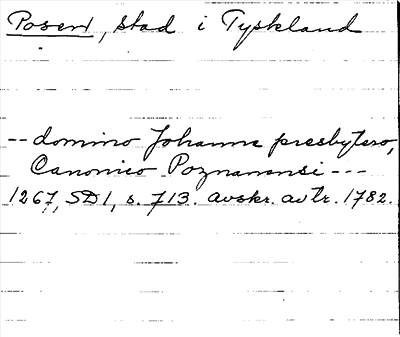 Posen, stad i Tyskland
-- domino Johanne presbytero,
Canonico Poznanensi ---
1267, SD 1, s. 713. avskr. av tr. 1782.